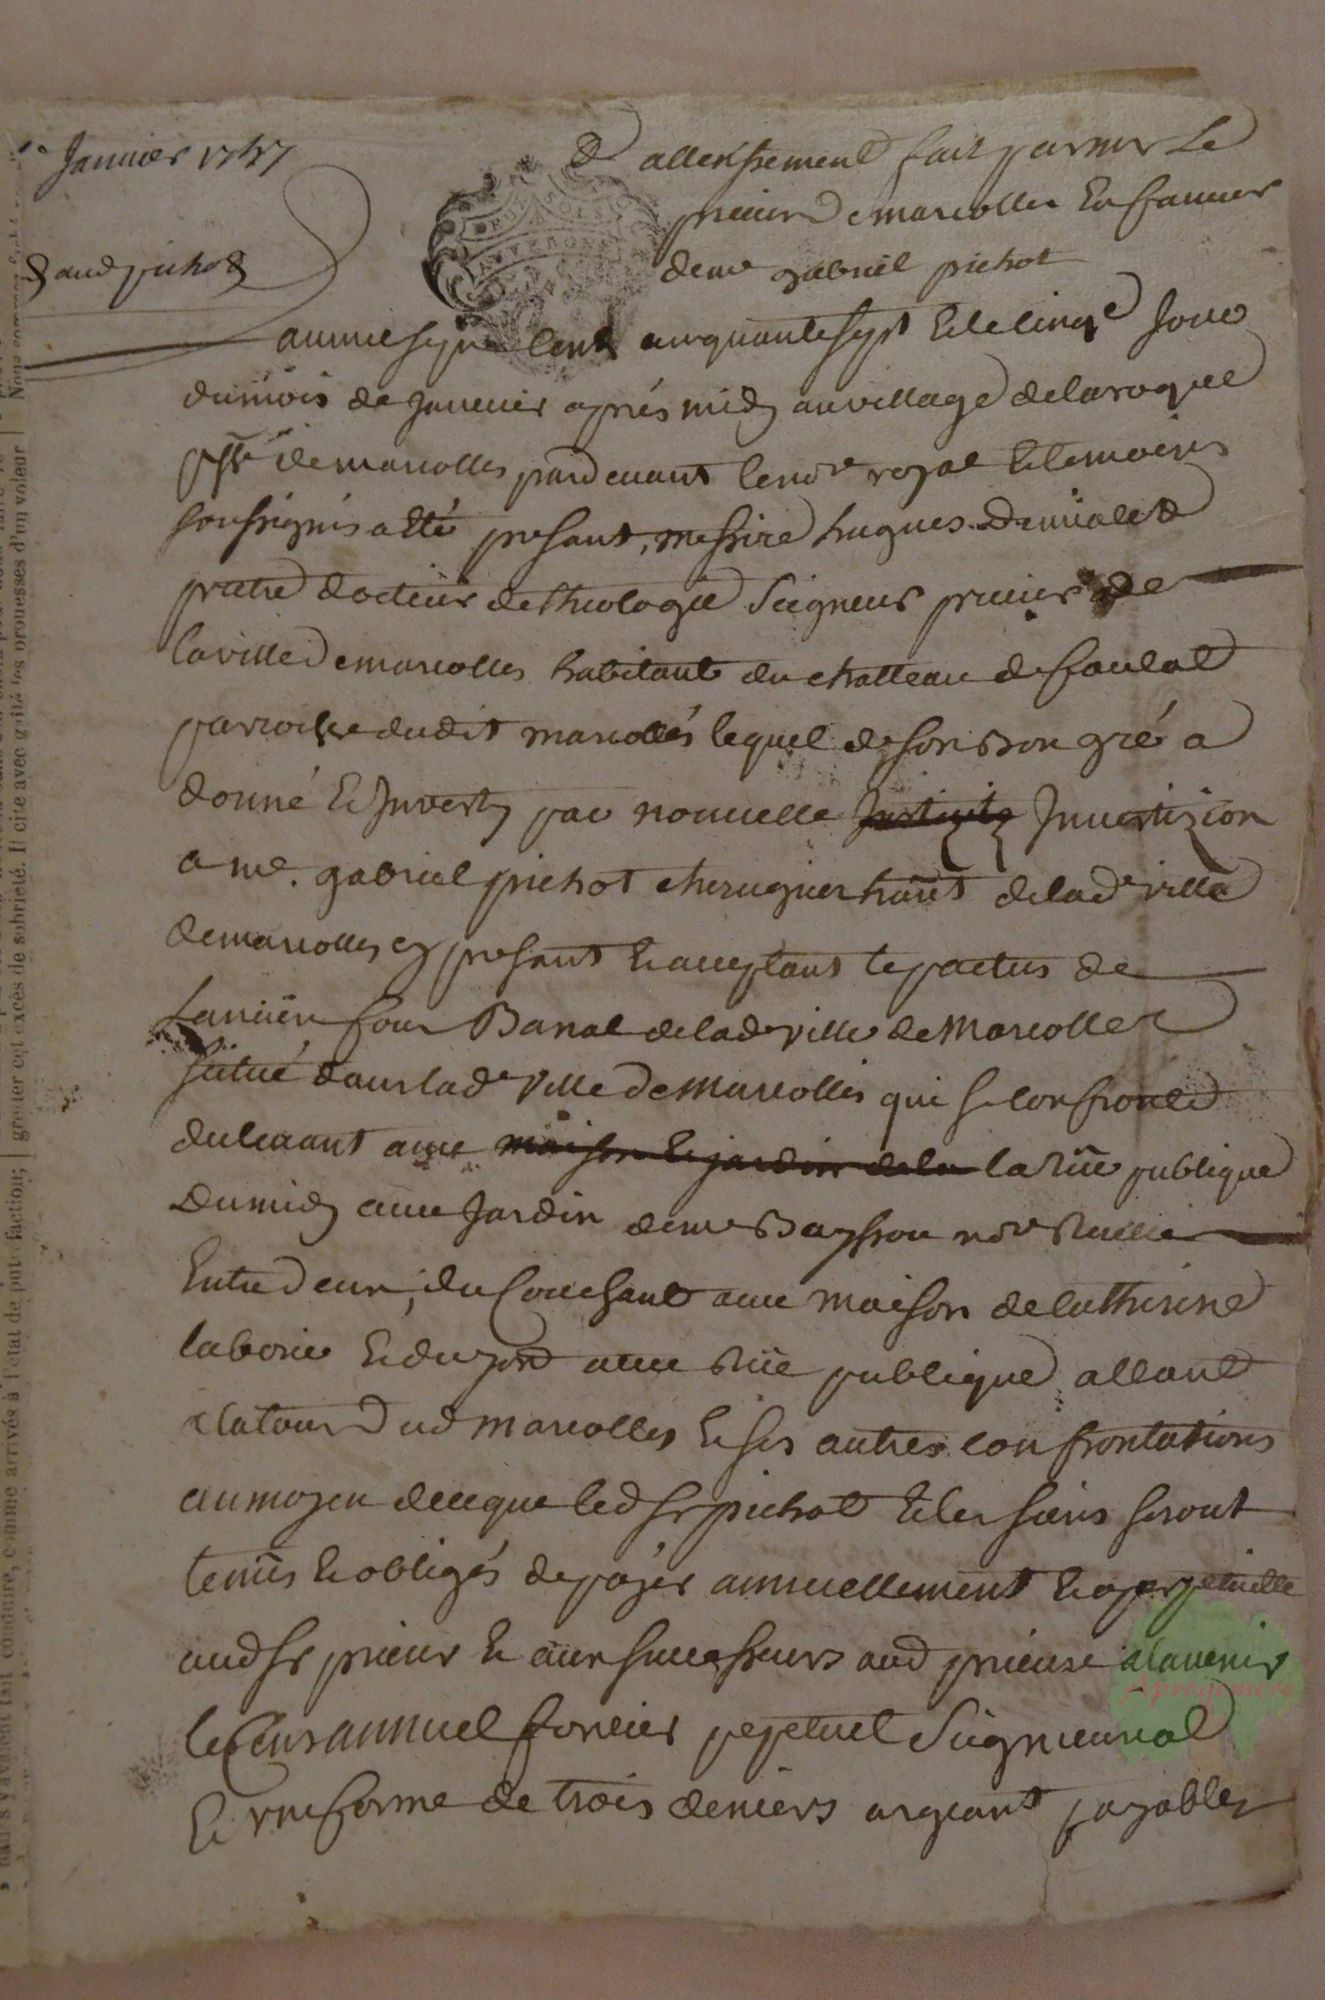 5e Janvier 1757
aud pichot
allensement fait par mr Le
prieur de marcolles En faveur
de me gabriel pichot
DEUX SOLS
AUVERGNE
an mil sept Cent cinquante sept Et le cinqe Jour
du mois de Janvier après midy au village de laroque
psse de marcolles pardevant le nore royal Et temoins
soussignés a Eté presant, messire hugues
pretre docteur de theologie Seigneur prieur de
la ville de marcolles habitant du chatteau de
parroisse dudit marcolles lequel de son bon gré a
donné Et Investy par nouvelle Investizion
a me. gabriel pichot chirugien hant de lade ville
de marcolles cy presant Et acceptant le pactus de
Lancien four Banal de lade ville de Marcolles
situé dans lade ville de Marcolles qui se confronte
du levant avec maison Et jardin de la la rüe publique
Du midy avec Jardin de me Bayssou nore Ruelle
Entre deux, du Couchant avec maison de catherine
laborie Et du nord avec Rüe publique allant
a la tour dud marcolles Et ses autres confrontations
au moyen de ce que led sr pichot Et les siens seront
tenüs Et obligés de payer annuellement Et a perpetuelle
aud sr prieur Et aux successeurs aud prieuré a lavenir
le Cens annuel foncier pepetuel Seigneurial
Et de trois deniers argeant payables
Aprogemere
grouter cet excès de sobriété. Il cite avec goût les prouesses d'un voleur
nait s'y avaient fait conduire, comme arrivés à l'état de putréfaction;